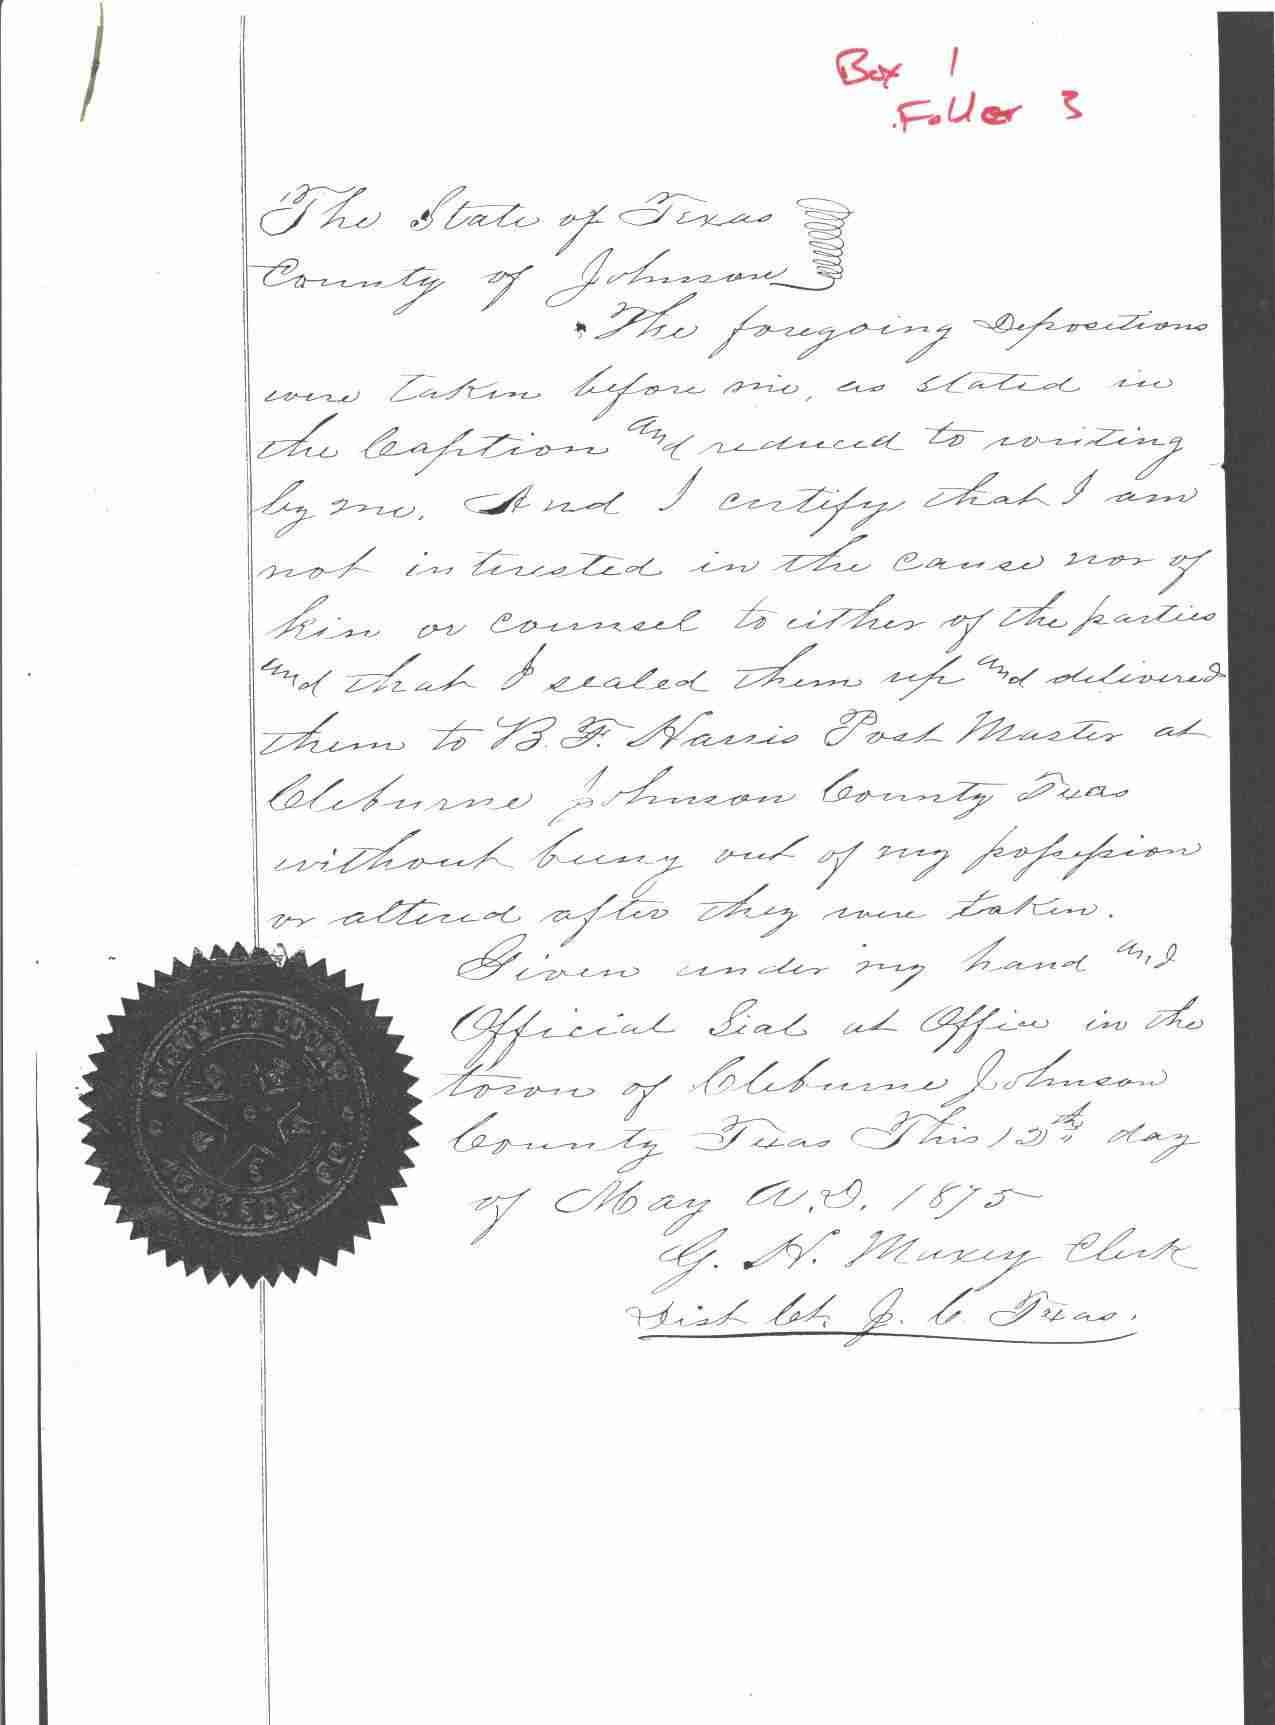 Box 1
Folder 3
The State of Texas
County of Johnson
The foregoing Depositions
were taken before me, as stated in
the Caption and reduced to writing
by me. And I certify that I am
not interested in the cause nor of
kin or counsel to either of the parties
and that I sealed them up and delivered
them to B. F. Harris Post Master at
Cleburne Johnson County Texas
without being out of my possession
or altered after they were taken.
Given under my hand and
Official Seal at Office in the
town of Cleburne Johnson
County Texas This 13th day
of May A.D. 1875
G. H. Maxey Clerk
Dist Ct. J. C. Texas.
DISTRICT COURT
JOHNSON CO
TEXAS